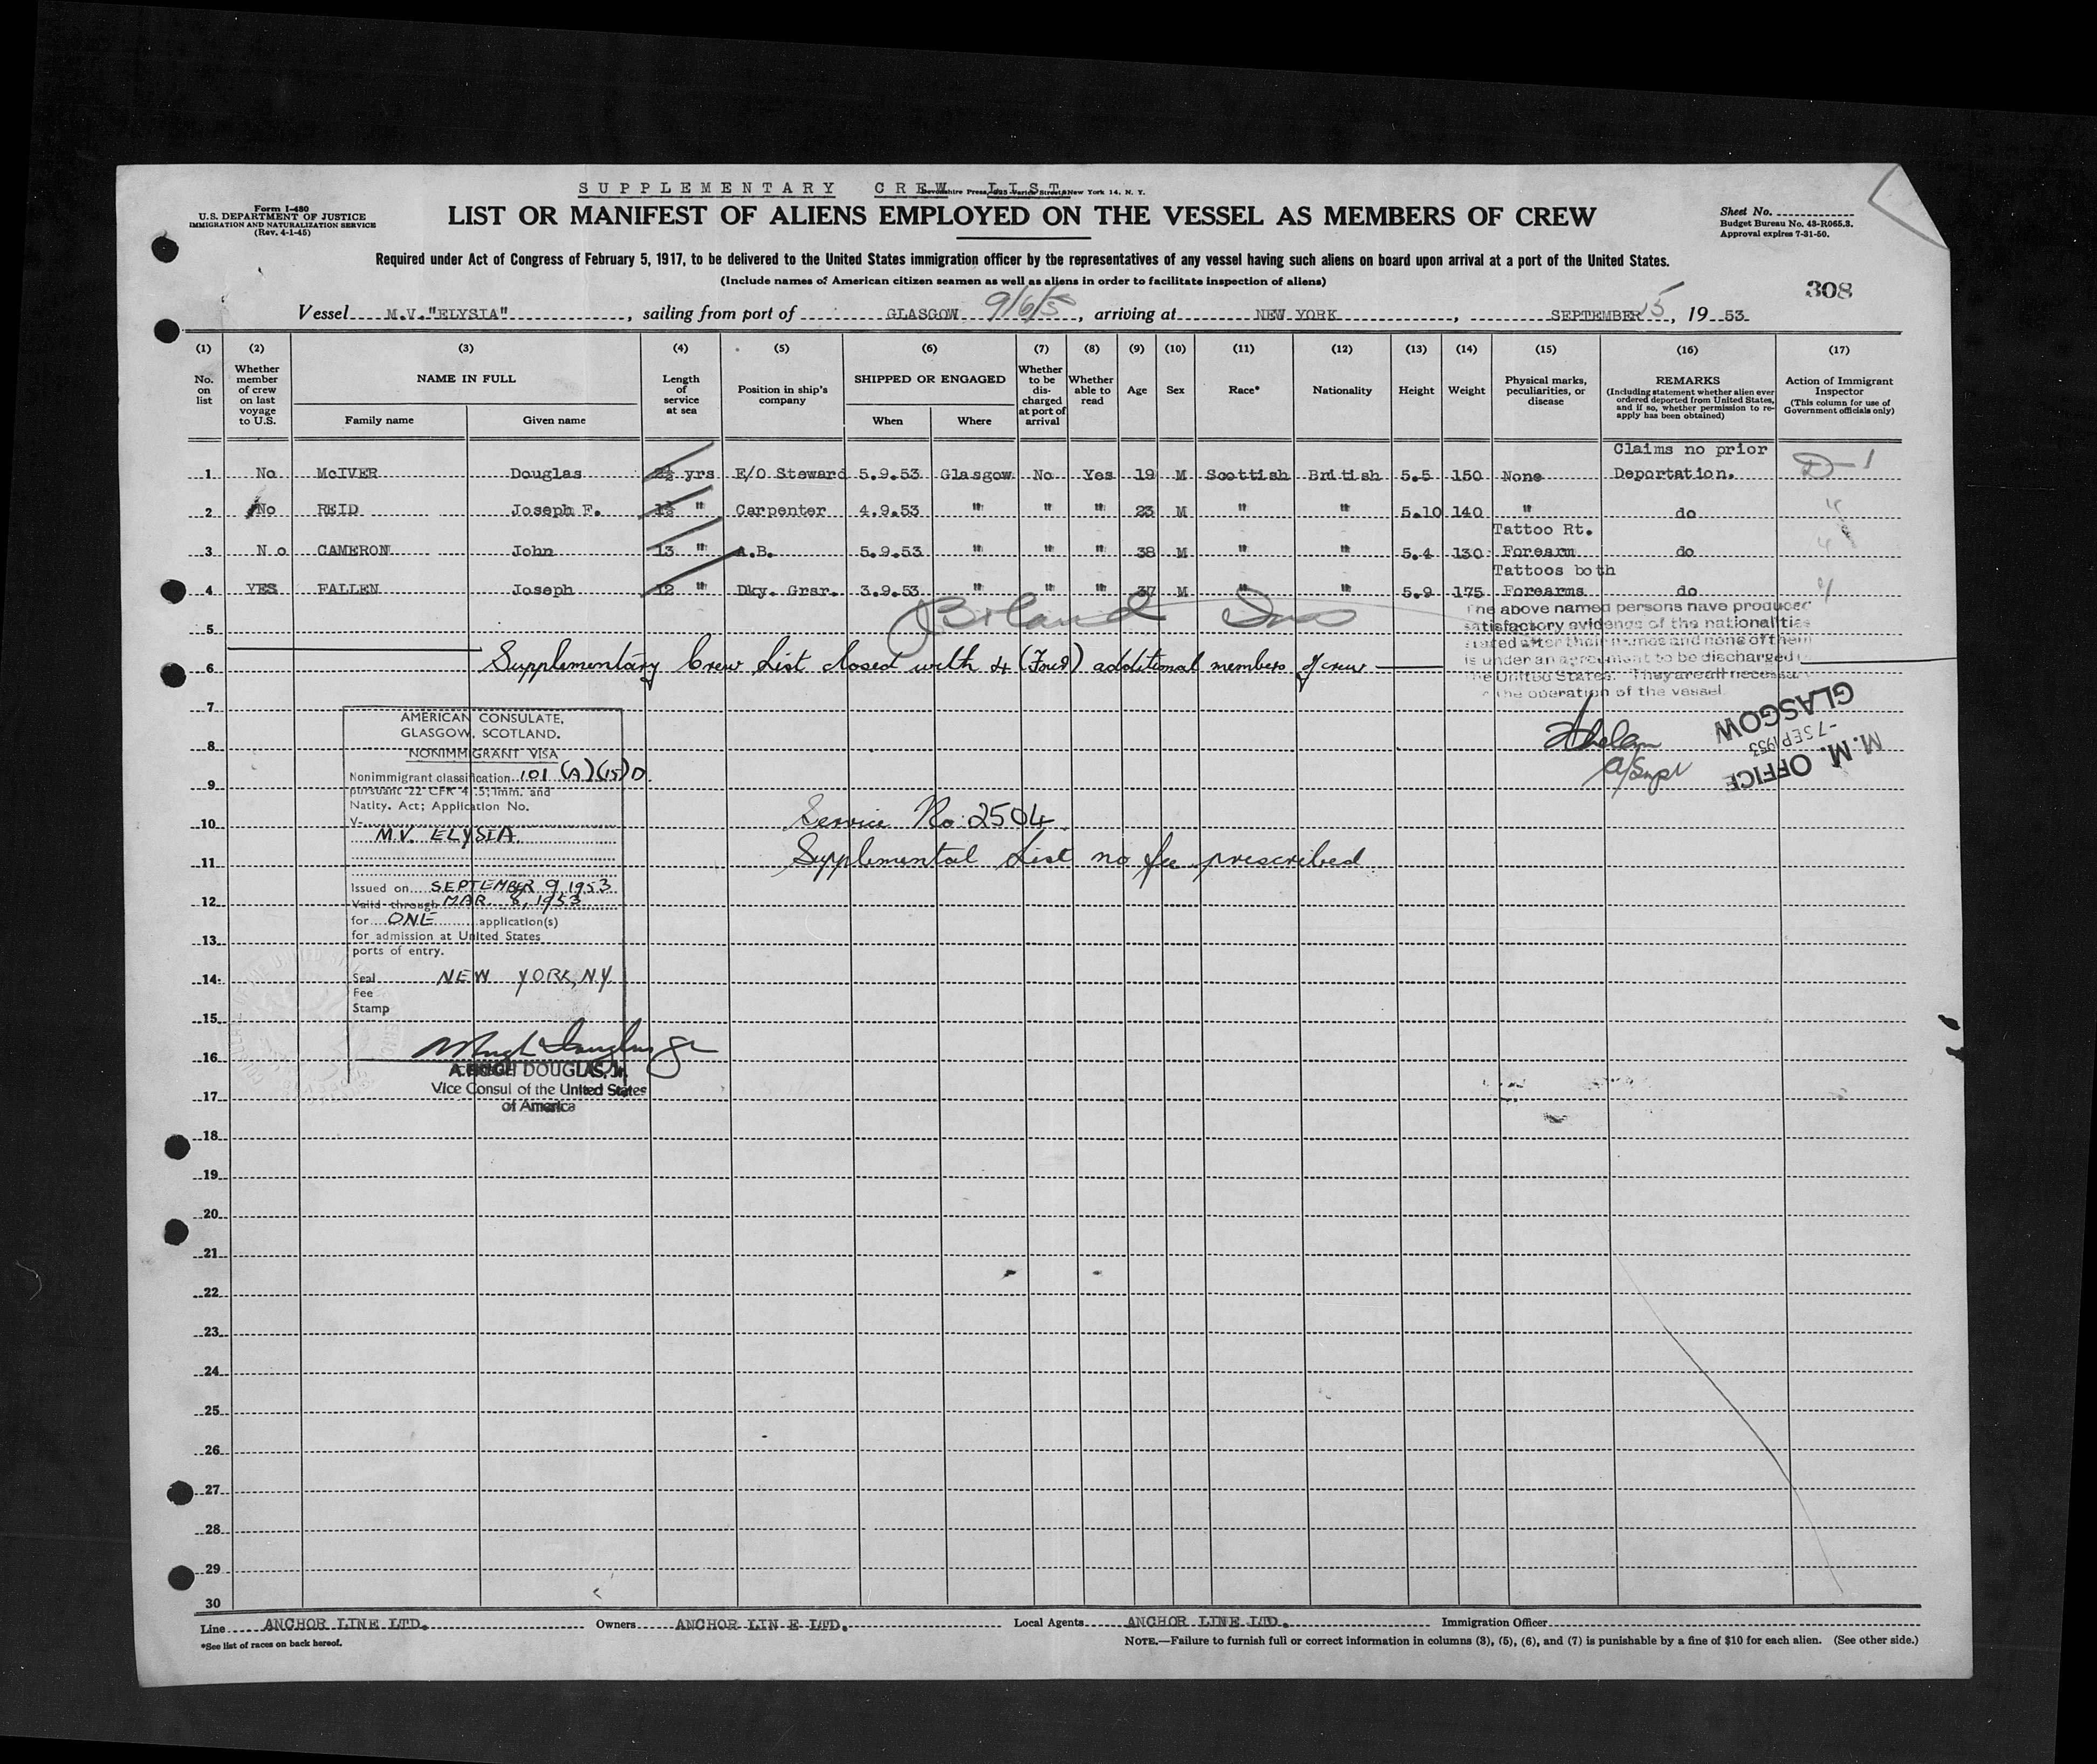 SUPPLEMENTARY CREW LIST
Form I-480
U.S. DEPARTMENT OF JUSTICE
IMMIGRATION AND NATURALIZATION SERVICE
(Rev. 4-1-45)
LIST OR MANIFEST OF ALIENS EMPLOYED ON THE VESSEL AS MEMBERS OF CREW
Sheet No.
Budget Bureau No. 43-R065.3.
Approval expires 7-31-50.
Required under Act of Congress of February 5, 1917, to be delivered to the United States immigration officer by the representatives of any vessel having such aliens on board upon arrival at a port of the United States.
(Include names of American citizen seamen as well as aliens in order to facilitate inspection of aliens)
308
Vessel M.V."ELYSIA", sailing from port of GLASGOW, arriving at NEW YORK, SEPTEMBER 15, 19 53
(1) (2) (3) (4) (5) (6) (7) (8) (9) (10) (11) (12) (13) (14) (15) (16) (17)
No. on list
Whether member of crew on last voyage to U.S.
NAME IN FULL
Family name Given name
Length of service at sea
Position in ship's company
SHIPPED OR ENGAGED
When Where
Whether to be discharged at port of arrival
Whether able to read
Age
Sex
Race*
Nationality
Height
Weight
Physical marks, peculiarities, or disease
REMARKS
(Including statement whether alien ever ordered deported from United States, and if so, whether permission to re-apply has been obtained)
Action of Immigrant Inspector
(This column for use of Government officials only)
Claims no prior
1 No McIVER Douglas 2½ yrs E/O Steward 5.9.53 Glasgow No Yes 19 M Scottish British 5.5 150 None Deportation. D-1
2 No REID Joseph F. 1½ " Carpenter 4.9.53 " " " 23 M " " 5.10 140 " do "
Tattoo Rt.
3 No CAMERON John 13 " A.B. 5.9.53 " " " 38 M " " 5.4 130 Forearm do "
Tattoos both
4 YES FALLEN Joseph 12 " Dky. Grsr. 3.9.53 " " " 37 M " " 5.9 175 Forearms do "
The above named persons have produced
satisfactory evidence of the nationalities
stated after their names and none of them
is under an agreement to be discharged in
the United States. They are all necessary
to the operation of the vessel.
5
6 Supplementary Crew List closed with 4 (Four) additional members of crew
7
8
9
10
11
12
13
14
15
16
17
18
19
20
21
22
23
24
25
26
27
28
29
30
AMERICAN CONSULATE,
GLASGOW, SCOTLAND.
NONIMMIGRANT VISA
Nonimmigrant classification 101 (A)(15)D
pursuant 22 CFR 4 .5; Imm. and
Natity. Act; Application No.
V-
M.V. ELYSIA.
Issued on SEPTEMBER 9, 1953
Valid through MAR. 8, 1953
for ONE application(s)
for admission at United States
ports of entry.
Seal NEW YORK, N.Y.
Fee
Stamp
A. HUGH DOUGLAS, Jr.
Vice Consul of the United States
of America
Service No: 2504
Supplemental List no fee prescribed
M. M. OFFICE
-7 SEP 1953
GLASGOW
Line ANCHOR LINE LTD. Owners ANCHOR LIN E LTD. Local Agents ANCHOR LINE LTD. Immigration Officer
*See list of races on back hereof.
NOTE.—Failure to furnish full or correct information in columns (3), (5), (6), and (7) is punishable by a fine of $10 for each alien. (See other side.)